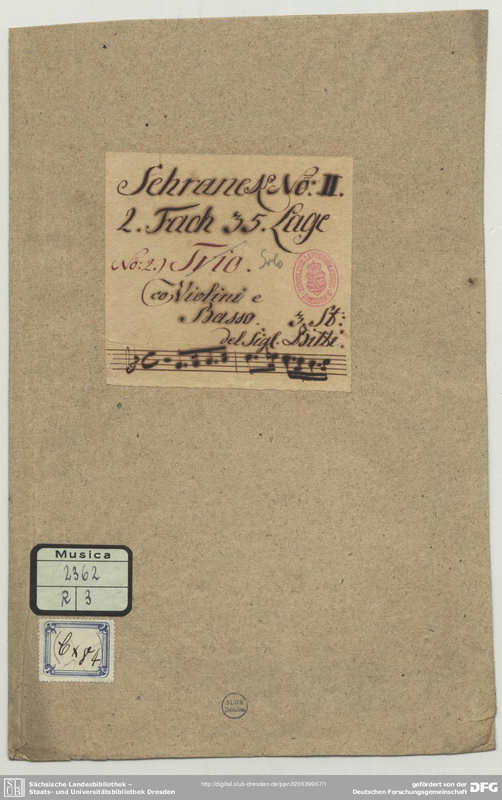 Schranck No: II.
2. Fach 35. Lage
No: 2.) Trio. Solo
co Violini e
Basso. 3. St:
del Sigl. Bitti.
Musica
2362
R 3
Cx 84
SLUB
Dresden
SLUB
Sächsische Landesbibliothek –
Staats- und Universitätsbibliothek Dresden
http://digital.slub-dresden.de/ppn320639967/1
gefördert von der
Deutschen Forschungsgemeinschaft
DFG